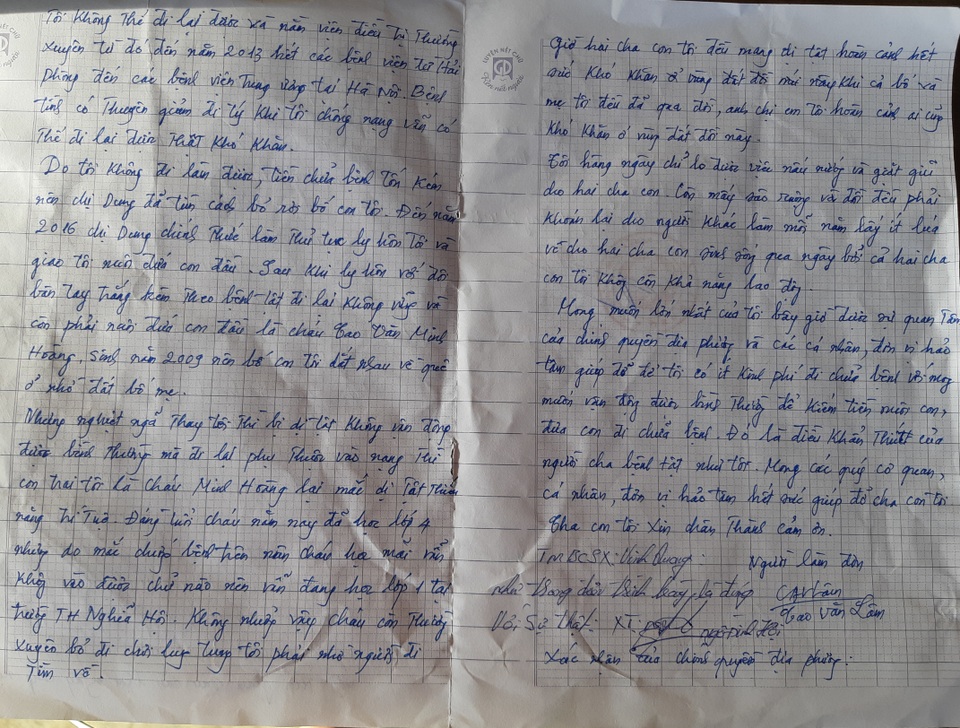 Tôi không thể đi lại được và nằm viện điều trị thường
xuyên từ đó đến năm 2013 hết các bệnh viện từ Hải
Phòng đến các bệnh viện trung ương tại Hà Nội. Bệnh
tình có thuyên giảm đi tý khi tôi chống nạng vẫn có
thể đi lại được thất khó khăn.
Do tôi không đi làm được, tiền chữa bệnh tốn kém
nên chị Dung đã tìm cách bỏ rơi bố con tôi. Đến năm
2016 chị Dung chính thức làm thủ tục ly hôn tôi và
giao tôi nuôi đứa con đầu. Sau khi ly hôn với đôi
bàn tay trắng kèm theo bệnh tật đi lại không vững và
còn phải nuôi đứa con đầu là cháu Cao Văn Minh
Hoàng, sinh năm 2009 nên bố con tôi dắt nhau về quê
ở nhờ đất bố mẹ.
Nhưng nghiệt ngã thay tôi thì bị dị tật không vận động
được bình thường mà đi lại phụ thuộc vào nạng thì
con trai tôi là cháu Minh Hoàng lại mắc dị tật thiểu
năng trí tuệ. Đáng tuổi cháu năm nay đã học lớp 4
nhưng do mắc chứng bệnh trên nên cháu học mãi vẫn
không vào được chữ nào nên vẫn đang học lớp 1 tại
trường TH Nghĩa Hội. Không những vậy cháu còn thường
xuyên bỏ đi chơi lung tung tôi phải nhờ người đi
tìm về.
Giờ hai cha con tôi đều mang dị tật hoàn cảnh hết
sức khó khăn ở vùng đất đồi núi này khi cả bố và
mẹ tôi đều đã qua đời, anh chị em tôi hoàn cảnh ai cũng
khó khăn ở vùng đất đồi này.
Tôi hàng ngày chỉ lo được việc nấu nướng và giặt giũ
cho hai cha con. Còn mấy sào ruộng và đồi đều phải
khoán lại cho người khác làm mỗi năm lấy ít lúa
về cho hai cha con sinh sống qua ngày bởi cả hai cha
con tôi không còn khả năng lao động.
Mong muốn lớn nhất của tôi bây giờ được sự quan tâm
của chính quyền địa phương và các cá nhân, đơn vị hảo
tâm giúp đỡ để tôi có ít kinh phí đi chữa bệnh với mong
muốn vận động được bình thường để kiếm tiền nuôi con,
đưa con đi chữa bệnh. Đó là điều khẩn thiết của
người cha bệnh tật như tôi. Mong các quý cơ quan,
cá nhân, đơn vị hảo tâm hết sức giúp đỡ cha con tôi
Cha con tôi xin chân thành cảm ơn.
TM BCSX: Vinh Quang: Người làm đơn
như trong đơn trình bày là đúng
Cao Văn Lâm
Với sự thật. XT
Xác nhận của chính quyền địa phương: